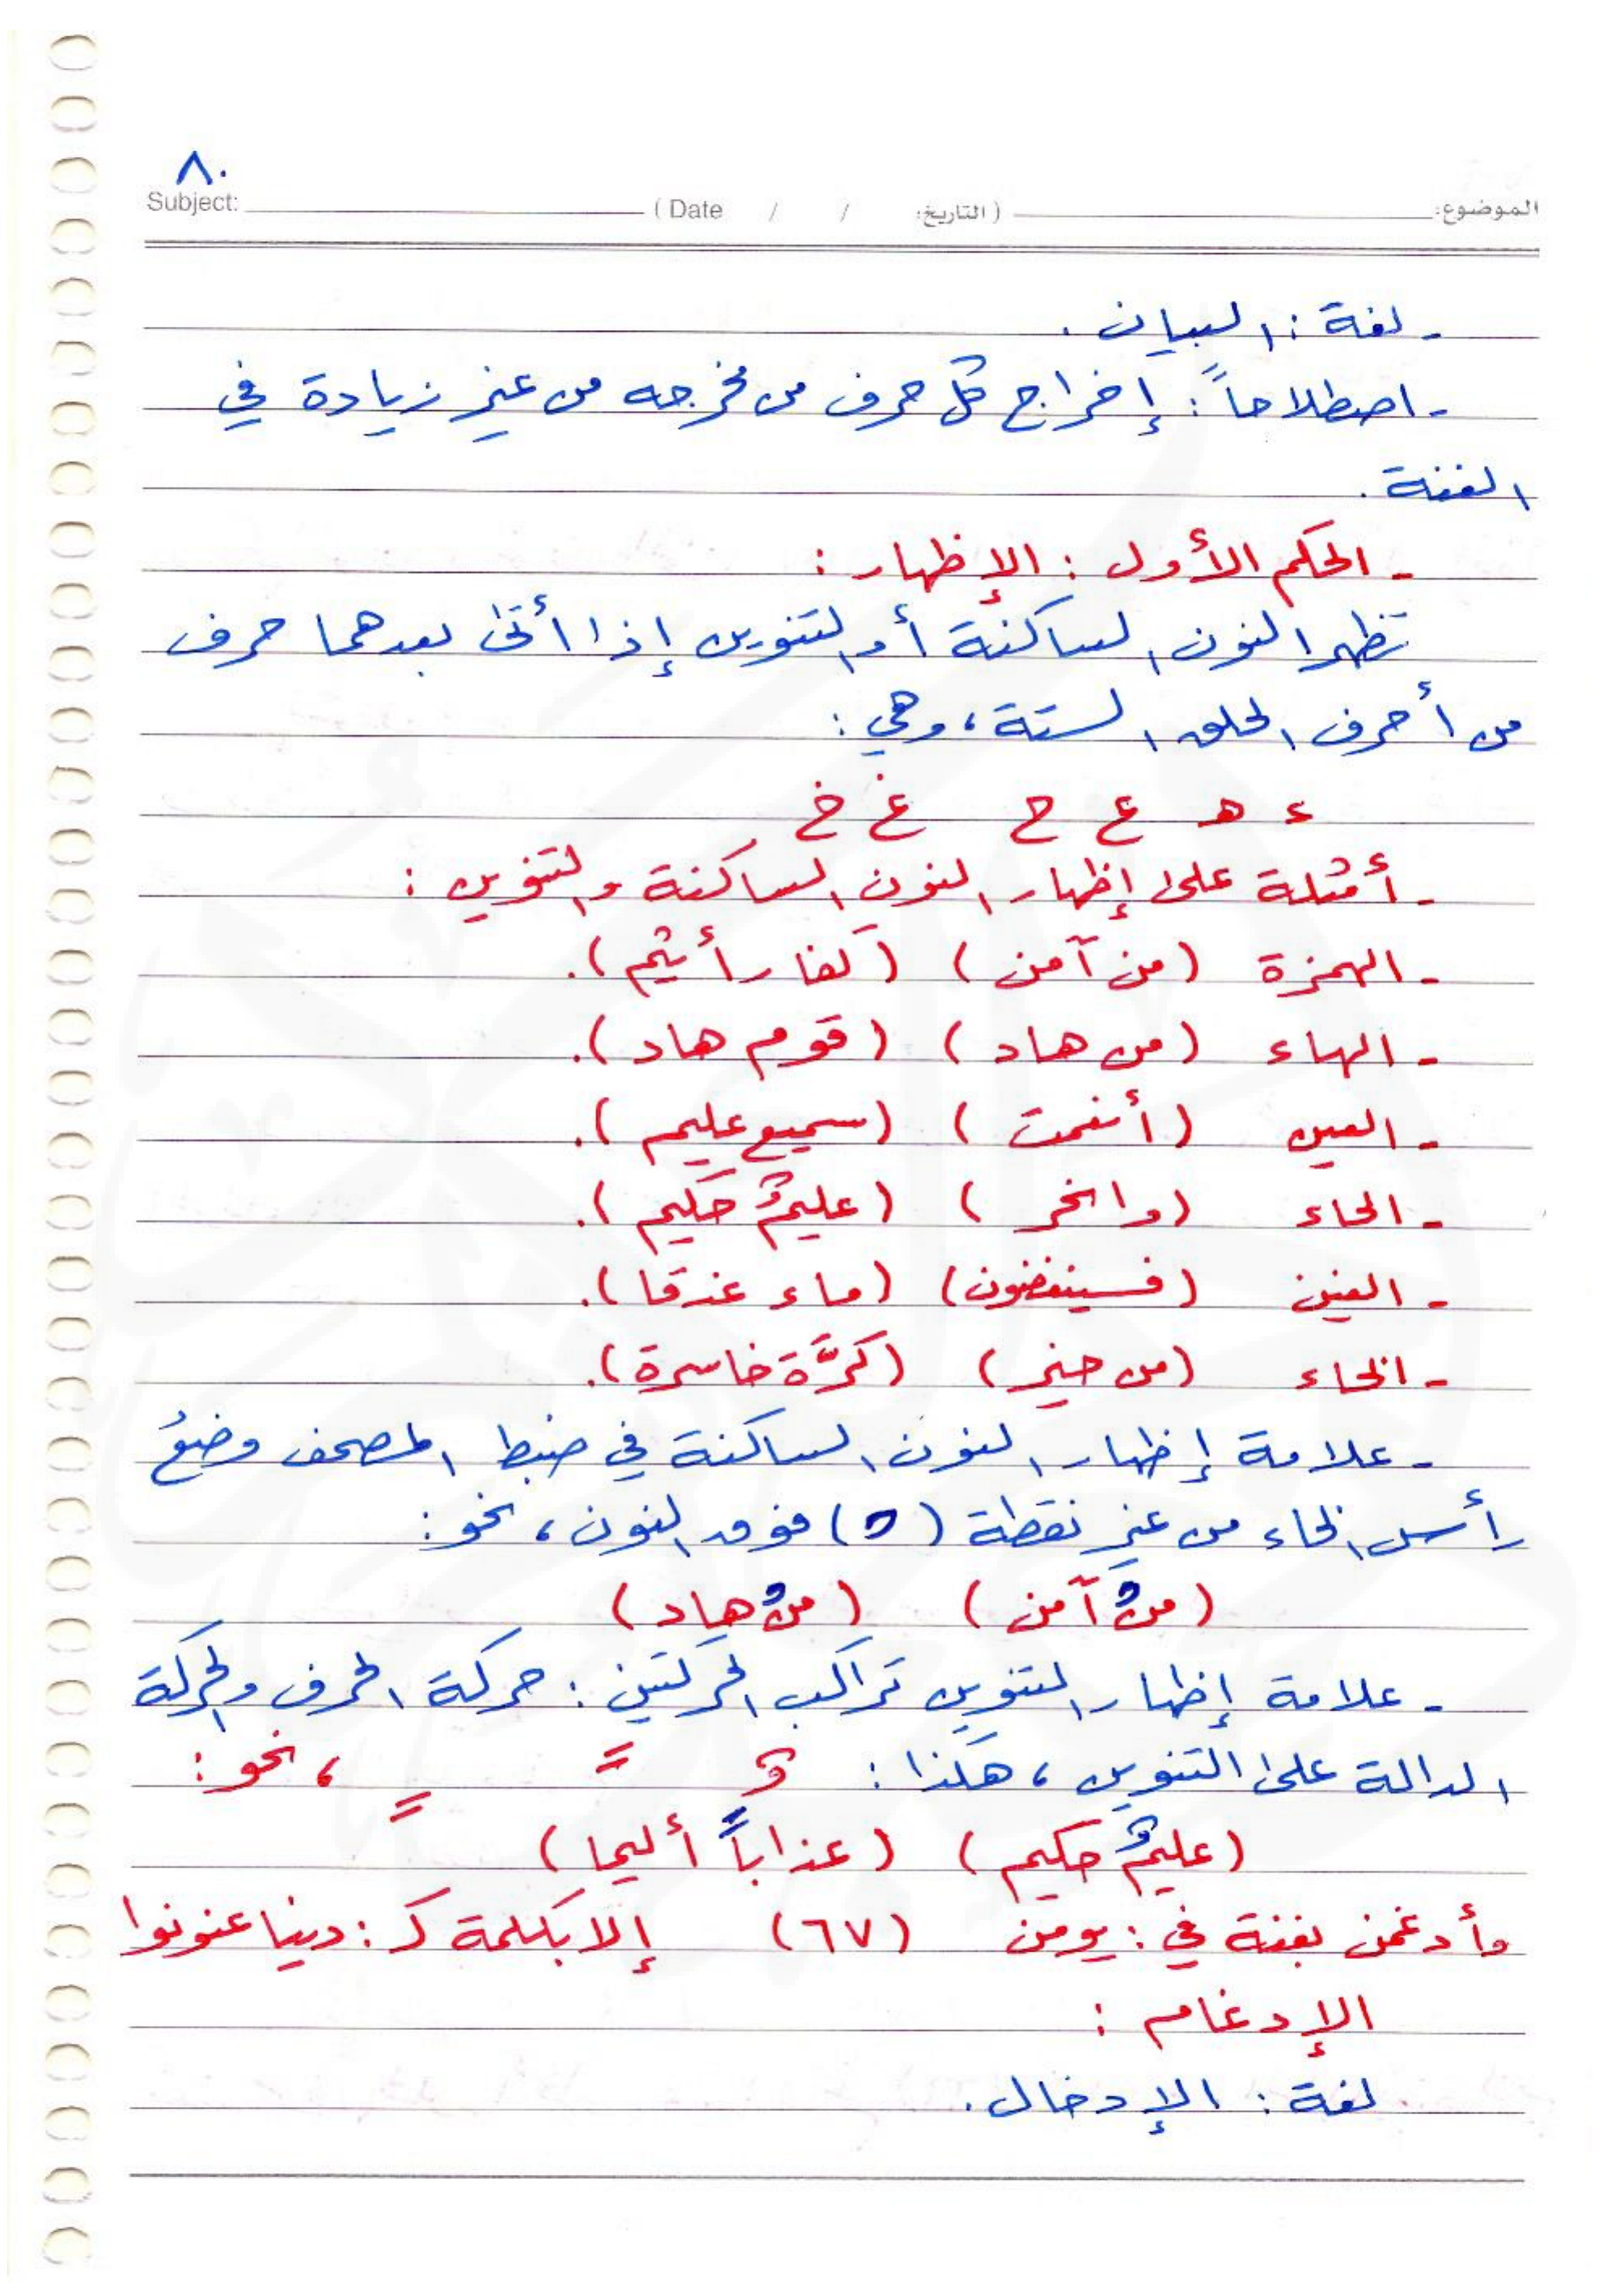 ٨٠
الموضوع: (التاريخ: / / Date) Subject:
- لغة: البيان.
- اصطلاحاً: إخراج كل حرف من مخرجه من غير زيادة في
الغنة.
- الحكم الأول: الإظهار:
تظهر النون الساكنة أو التنوين إذا أتى بعدهما حرف
من أحرف الحلق الستة، وهي:
ء هـ ع ح غ خ
- أمثلة على إظهار النون الساكنة والتنوين:
- الهمزة (من آمن) (كفار أثيم).
- الهاء (من هاد) (قوم هاد).
- العين (أنعمت) (سميع عليم).
- الحاء (وانحر) (عليمٌ حكيم).
- الغين (فسينغضون) (ماء غدقا).
- الخاء (من خير) (كرَّة خاسرة).
- علامة إظهار النون الساكنة في ضبط المصحف وضعُ
رأس الخاء من غير نقطة (ح) فوق النون، نحو:
(منْ آمن) (منْ هاد)
- علامة إظهار التنوين تراكب الحركتين: حركة الحرف والحركة
الدالة على التنوين، هكذا: ٌ ً ٍ ، نحو:
(عليمٌ حكيم) (عذاباً أليما)
وأدغمن بغنة في: يومن (٦٧) إلا بكلمة كـ: دنيا عنونوا
الإدغام:
لغة: الإدخال.